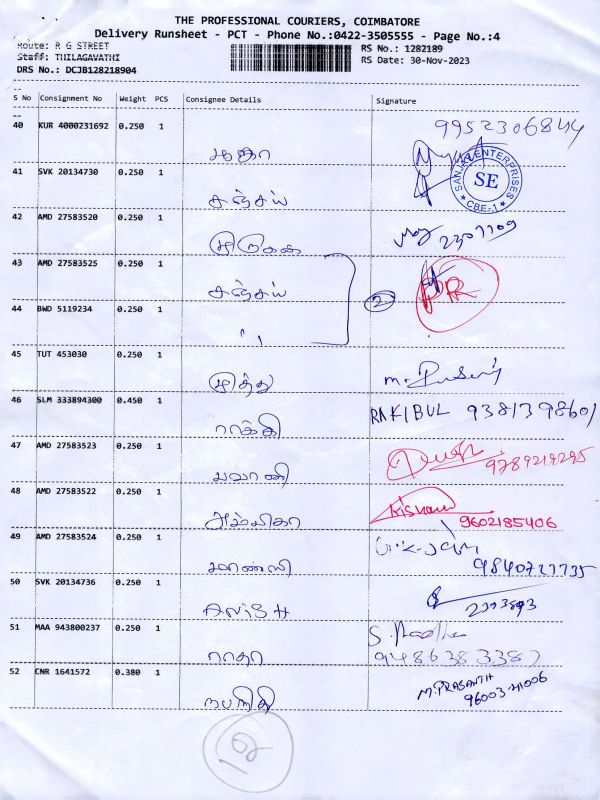 THE PROFESSIONAL COURIERS, COIMBATORE
Delivery Runsheet - PCT - Phone No.:0422-3505555 - Page No.:4
Route: R G STREET
RS No.: 1282189
Staff: THILAGAVATHI
RS Date: 30-Nov-2023
DRS No.: DCJB128218904
S No Consignment No Weight PCS Consignee Details Signature
40 KUR 4000231692 0.250 1
9952306844
41 SVK 20134730 0.250 1
சஞ்சய்
SANJAY ENTERPRISES
SE
CBE-1
42 AMD 27583520 0.250 1
2307709
43 AMD 27583525 0.250 1
சஞ்சய்
2
44 BWD 5119234 0.250 1
"
45 TUT 453030 0.250 1
முத்து
46 SLM 333894300 0.450 1
ராக்கி
RAKIBUL 9381398601
47 AMD 27583523 0.250 1
பவானி
9789219295
48 AMD 27583522 0.250 1
அம்பிகா
Kishan
9602185406
49 AMD 27583524 0.250 1
மான்�ி
9840727735
50 SVK 20134736 0.250 1
51 MAA 943800237 0.250 1
ராதா
S. Radha
9486383387
52 CNR 1641572 0.380 1
M. PRASANTH
96003 21006